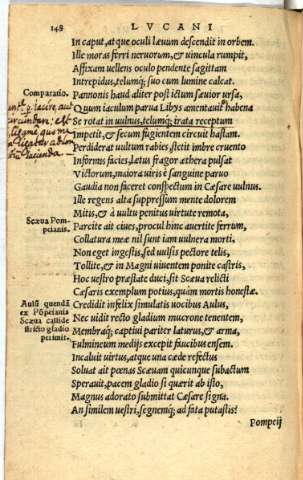 148 LVCANI
In caput, atque oculi lævum descendit in orbem.
Ille moras ferri nervorum, & vincula rumpit,
Affixam vellens oculo pendente sagittam
Intrepidus, telumq; suo cum lumine calcat.
Comparatio.
Pannonis haud aliter post ictum sævior ursa,
Quum iaculum parva Libys amentavit habena
Se rotat in vulnus, telumq; irata receptum
Impetit, & secum fugientem circuit hastam.
Perdiderat vultum rabies, stetit imbre cruento
Informis facies, lætus fragor æthera pulsat
Victorum, maiora viris è sanguine parvo
Gaudia non faceret conspectum in Cæsare vulnus.
Ille regens alta suppressum mente dolorem
Mitis, & à vultu penitus virtute remota,
Scæua Pompeianis.
Parcite ait cives, procul hinc avertite ferrum,
Collatura meæ nil sunt iam vulnera morti.
Non eget ingestis, sed vulsis pectore telis,
Tollite, & in Magni viventem ponite castris,
Hoc vestro præstate duci, sit Scæva relicti
Cæsaris exemplum potius, quàm mortis honestæ.
Aulũ quendã ex Põpeianis Scæua callide stricto gladio perimit.
Credidit infelix simulatis vocibus Aulus,
Nec vidit recto gladium mucrone tenentem,
Membraq; captivi pariter laturus, & arma,
Fulmineum mediis excepit faucibus ensem.
Incaluit virtus, atque una cæde refectus
Solvat ait pœnas Scævam quicunque subactum
Speravit, pacem gladio si quærit ab isto,
Magnus adorato submittat Cæsare signa.
An similem vestri, segnemq; ad fata putastis?
Pompeij